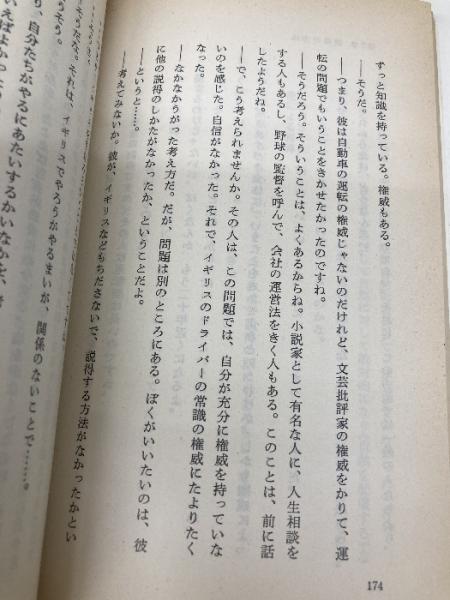 ずっと知識を持っている。権威もある。
――そうだ。
――つまり、彼は自動車の運転の権威じゃないのだけれど、文芸批評家の権威をかりて、運
転の問題でもいうことをきかせたかったのですね。
――そうだろう。そういうことは、よくあるからね。小説家として有名な人に、人生相談を
する人もあるし、野球の監督を呼んで、会社の運営法をきく人もある。このことは、前に話
したようだね。
――で、こう考えられませんか。その人は、この問題では、自分が充分に権威を持っていな
いのを感じた。自信がなかった。それで、イギリスのドライバーの常識の権威にたよりたく
なった。
――なかなかうがった考え方だ。だが、問題は別のところにある。ぼくがいいたいのは、彼
に他の説得のしかたがなかったか、ということだよ。
――というと……。
――考えてみないか。彼が、イギリスなどもちださないで、説得する方法がなかったかとい
そうだな。それは、イギリスでやろうがやるまいが、関係のないことで……。
り、自分たちがやるにあたいするかいなかを、
いえばよかった
174